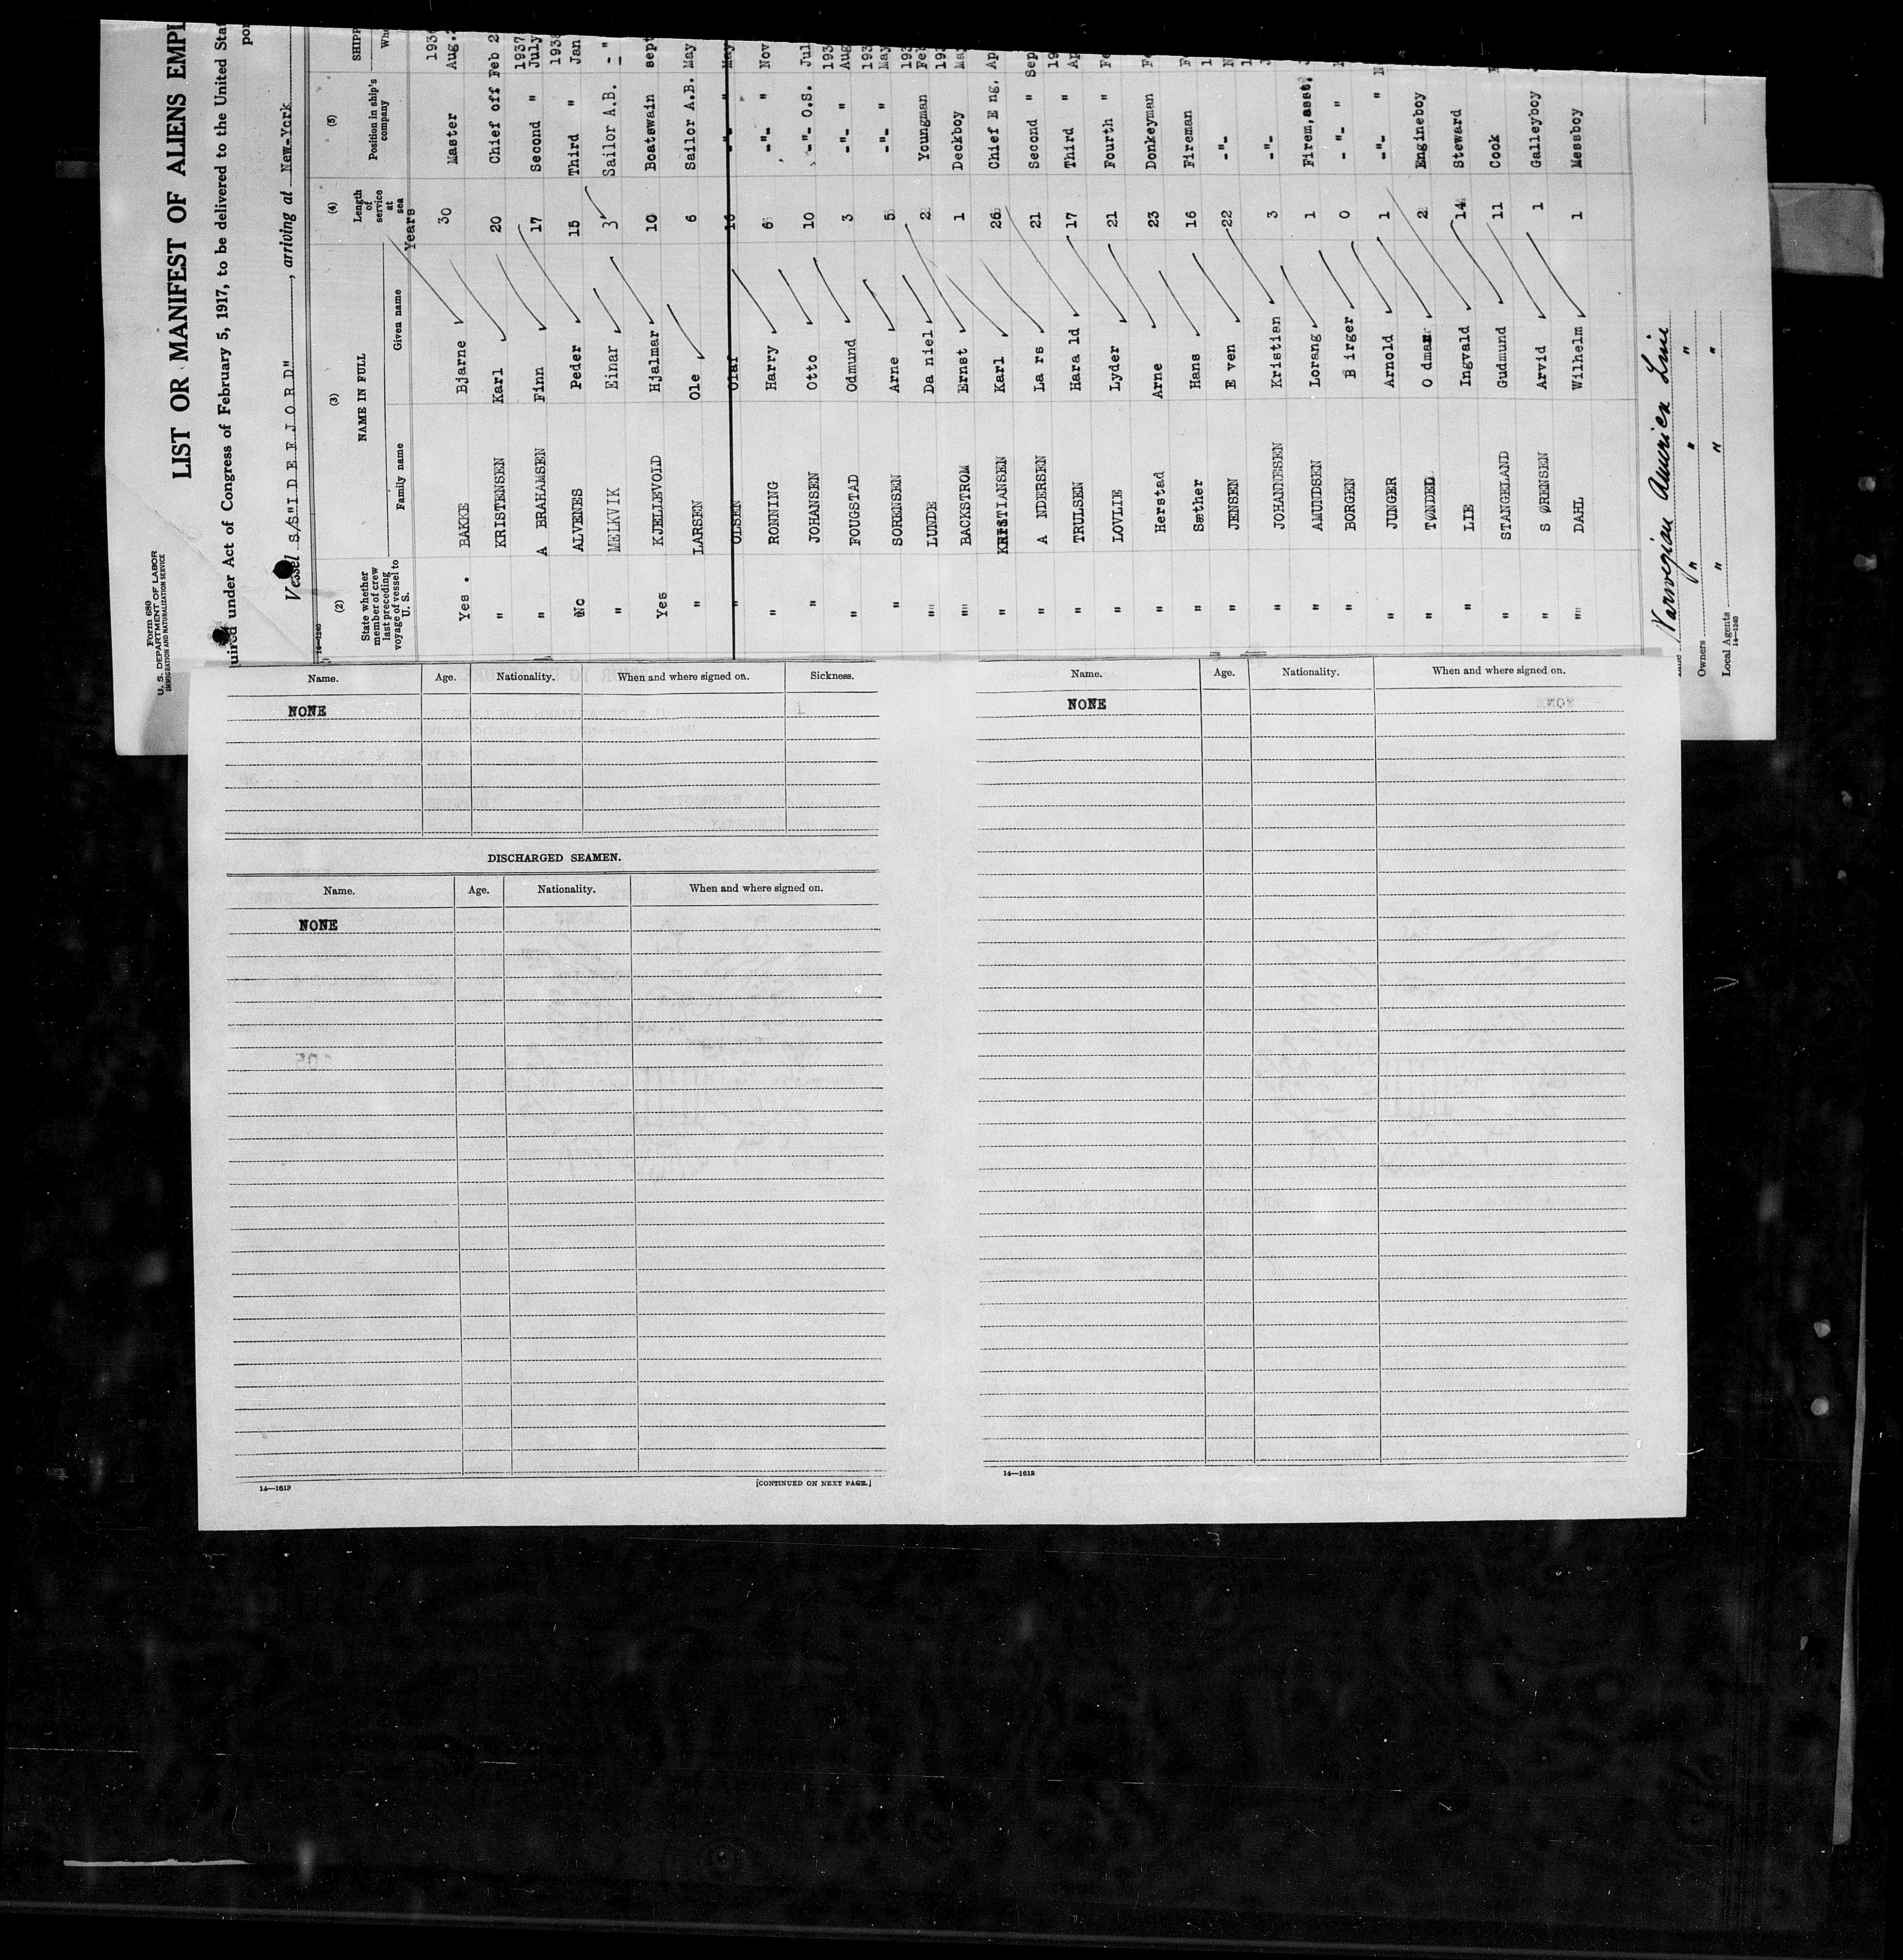 Form 680
U. S. DEPARTMENT OF LABOR
IMMIGRATION AND NATURALIZATION SERVICE
LIST OR MANIFEST OF ALIENS EMPL
uired under Act of Congress of February 5, 1917, to be delivered to the United Stat
por
Vessel S/S "I D E F J O R D" , arriving at New-York
14—1240
(2) (3) (4) (5)
State whether member of crew last preceding voyage of vessel to U. S. NAME IN FULL Length of service at sea Position in ship's company SHIPP
Family name Given name Years Whe
Yes . BAKKE Bjarne 30 Master 1936 Aug.
" KRISTENSEN Karl 20 Chief off Feb 2
" A BRAHAMSEN Finn 17 Second " 1937 July
No ALVENES Peder 15 Third " 1938 Jan
" MELKVIK Einar 3 Sailor A.B. - "
Yes KJELLEVOLD Hjalmar 10 Boatswain sept
" LARSEN Ole 6 Sailor A.B. May
" OLSEN Olaf 16 -"- " May
" RONNING Harry 6 -"- " Nov
" JOHANSEN Otto 10 -"- O.S. Jul
" FOUGSTAD Odmund 3 -"- " 193 Aug
" SORENSEN Arne 5 -"- " 193 May
"" LUNDE Da niel 2 Youngman 193 Feb
"" BACKSTROM Ernst 1 Deckboy 193 Ma
" KRISTIANSEN Karl 26 Chief E ng. Ap
" A NDERSEN La rs 21 Second " Sep
" TRULSEN Hara ld 17 Third " 19 Ap
" LOVLIE Lyder 21 Fourth " Fe
" Herstad Arne 23 Donkeyman Fe
" Sæther Hans 16 Fireman F
" JENSEN E ven 22 -"- N
" JOHANNESEN Kristian 3 -"-
" AMUNDSEN Lorang 1 Firem,asst.
" BORGEN B irger 0 - "- "
" JUNGER Arnold 1 -"- " N
" TØNDEL O dmar 2 Engineboy
" LIE Ingvald 14 Steward
" STANGELAND Gudmund 11 Cook
" S ØRENSEN Arvid 1 Galleyboy
"" DAHL Wilhelm 1 Messboy
Norwegian America Line
Owners " " "
Local Agents " " "
14—1240
Name. Age. Nationality. When and where signed on. Sickness.
NONE
DISCHARGED SEAMEN.
Name. Age. Nationality. When and where signed on.
NONE
14—1612
[CONTINUED ON NEXT PAGE.]
Name. Age. Nationality. When and where signed on.
NONE
14—1612